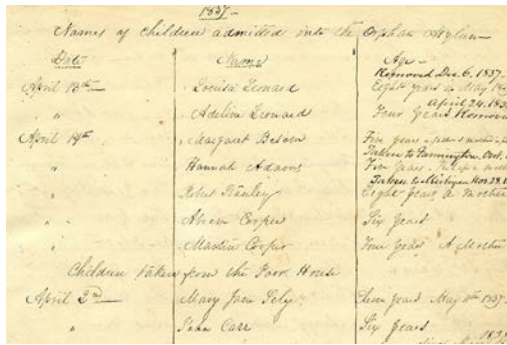 1837
Names of Children admitted into the Orphan Asylum
Date Name Age
Removed Dec. 6. 1837
April 13th Louisa Leonard Eight years in May
April 24. 183
" Adeline Leonard Four Years Removed
April 19th Margaret Five years
Taken to Farmington, Oct.
" Hannah Adams Five Years
Taken to Michigan Nov. 28. 
" Robert Stanley Eight Years a Mother
" Six Years
" Martin Four Years A Mother
Children taken from the Poor House
April 2nd Mary Jane years May 11th 1837
" John Carr Six Years